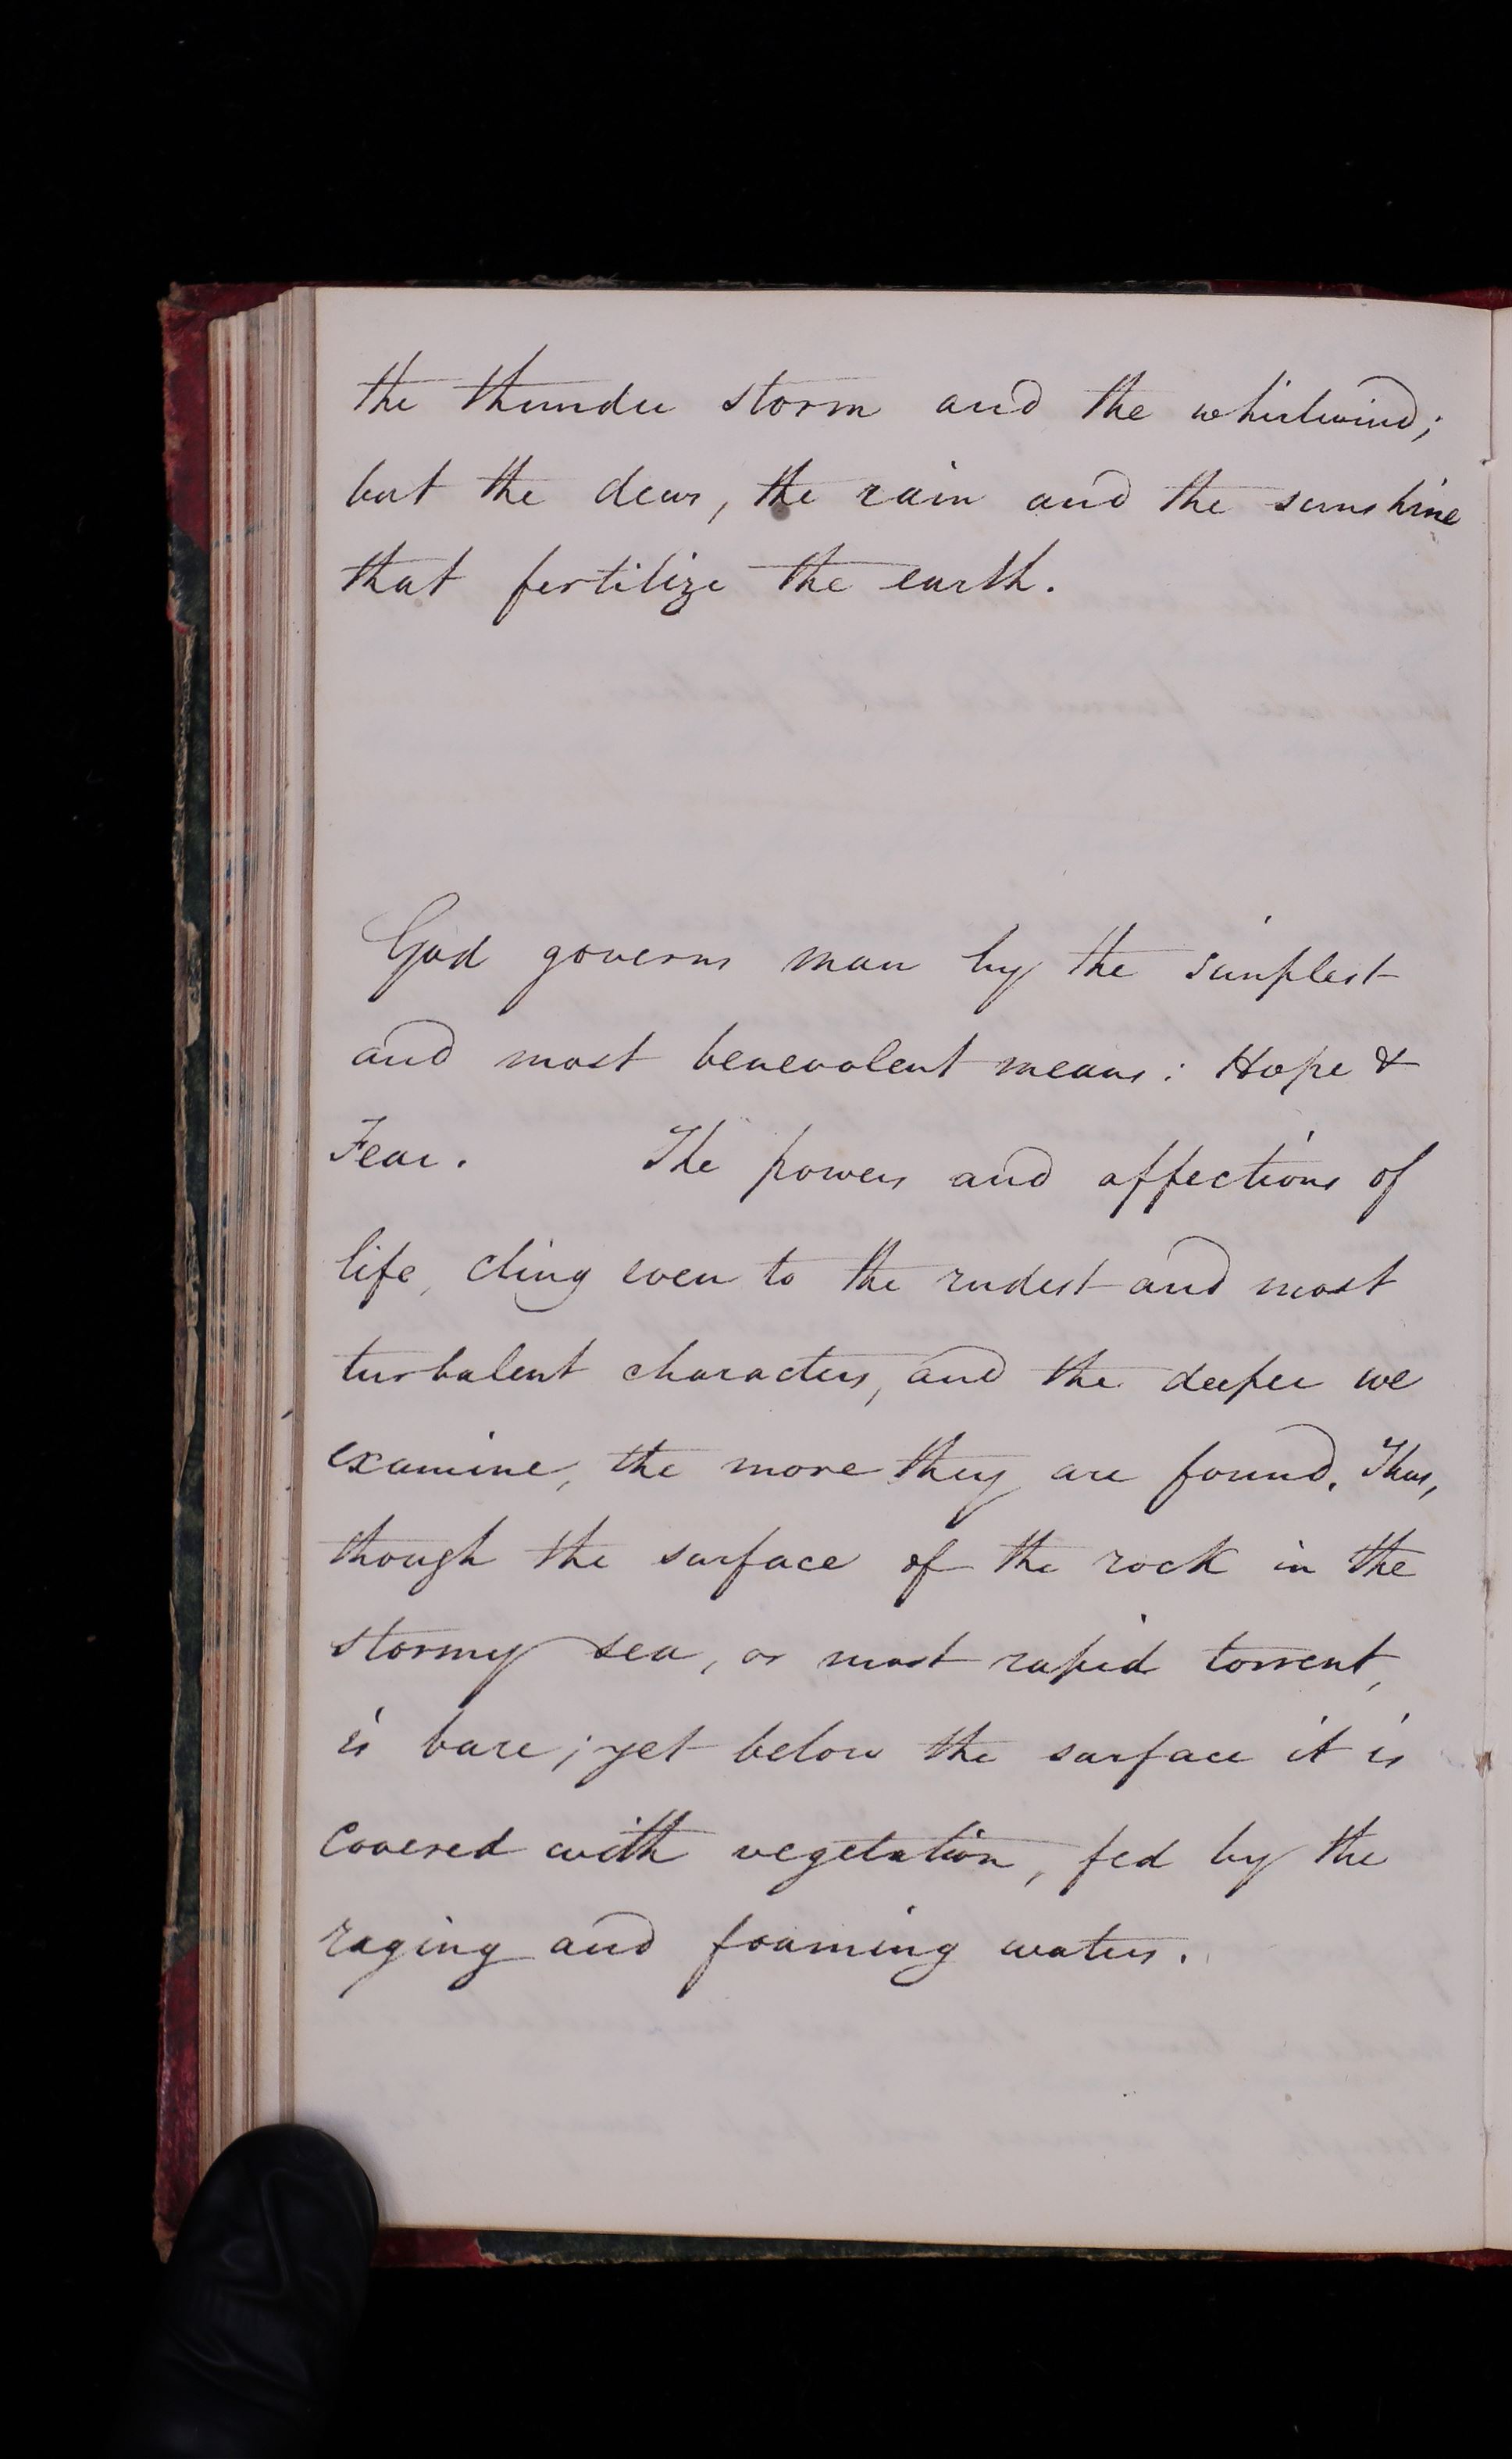 the thunder storm and the whirlwind;
but the dews, the rain and the sunshine
that fertilize the earth.
God governs man by the simplest
and most benevolent means: Hope &
Fear. The powers and affections of
life, cling even to the rudest and most
turbulent characters, and the deeper we
examine, the more they are found. Thus,
though the surface of the rock in the
stormy sea, or most rapid torrent,
is bare; yet below the surface it is
covered with vegetation, fed by the
raging and foaming waters.